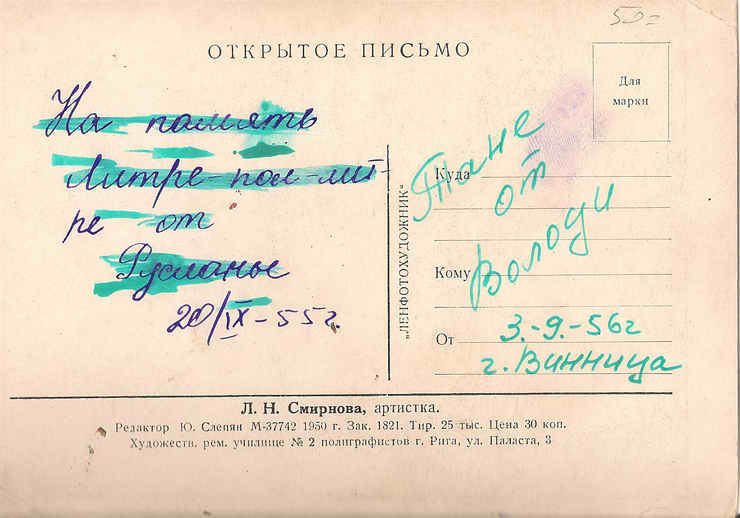 50=
ОТКРЫТОЕ ПИСЬМО
Для
марки
На память
Литре-пол-лит-
ре от
Русланы
20/IX-55г.
"ЛЕНФОТОХУДОЖНИК"
Куда
Тане
от
Володи
Кому
От 3.-9.-56г
г. Винница
Л. Н. Смирнова, артистка.
Редактор Ю. Слепян М-37742 1950 г. Зак. 1821. Тир. 25 тыс. Цена 30 коп.
Художеств. рем. училище № 2 полиграфистов г. Рига, ул. Паласта, 3